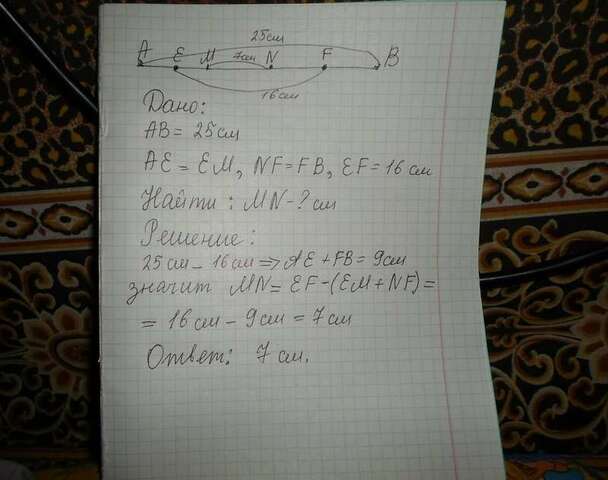 25см
A E M 7см N F B
16см
Дано:
AB = 25см
AE = EM, NF = FB, EF = 16 см
Найти: MN - ? см
Решение:
25 см - 16 см => AE + FB = 9см
значит MN = EF - (EM + NF) =
= 16 см - 9 см = 7 см
Ответ: 7 см.